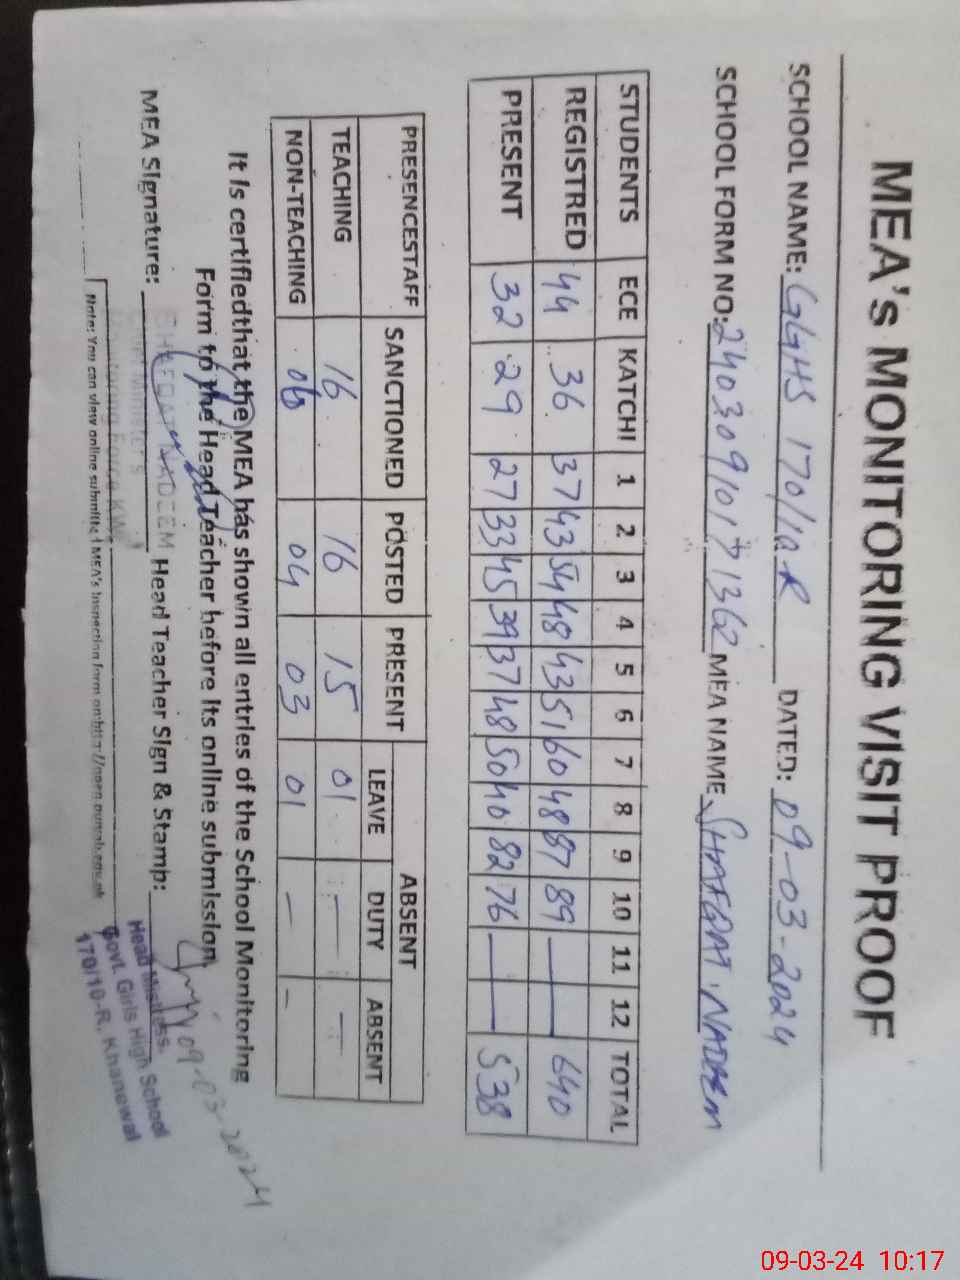 MEA's MONITORING VISIT PROOF
SCHOOL NAME: GGHS 170/10R DATED: 09-03-2024
SCHOOL FORM NO: 24030910171362 MEA NAME SHAFQAT NADEEM
STUDENTS ECE KATCHI 1 2 3 4 5 6 7 8 9 10 11 12 TOTAL
REGISTRED 44 36 37 43 54 48 43 51 60 48 87 89 — — 640
PRESENT 32 29 27 33 45 39 37 48 50 40 82 76 — — 538
PRESENCESTAFF SANCTIONED POSTED PRESENT ABSENT
LEAVE DUTY ABSENT
TEACHING 16 16 15 01 — —
NON-TEACHING 06 04 03 01 — —
It is certifiedthat the MEA has shown all entries of the School Monitoring
Form to the Head Teacher before its online submission.
09-03-2024
MEA Signature: SHAFQAT NADEEM Head Teacher Sign & Stamp:
Chief Minister's
Monitoring Force KWL
Head Mistress.
Govt. Girls High School
170/10-R. Khanewal
Note: You can view online submitted MEA's Inspection form on:http://open.punjab.gov.pk
09-03-24 10:17